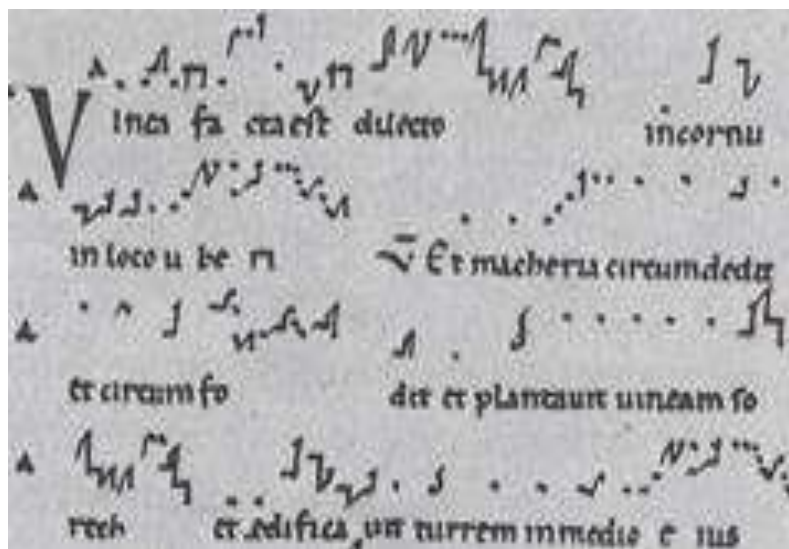 Vinea fa cta est dilecto in cornu
in loco u be ri V Et maceria circumdedit
et circum fo dit et plantauit uineam so
rech et edifica uit turrem in medio e ius